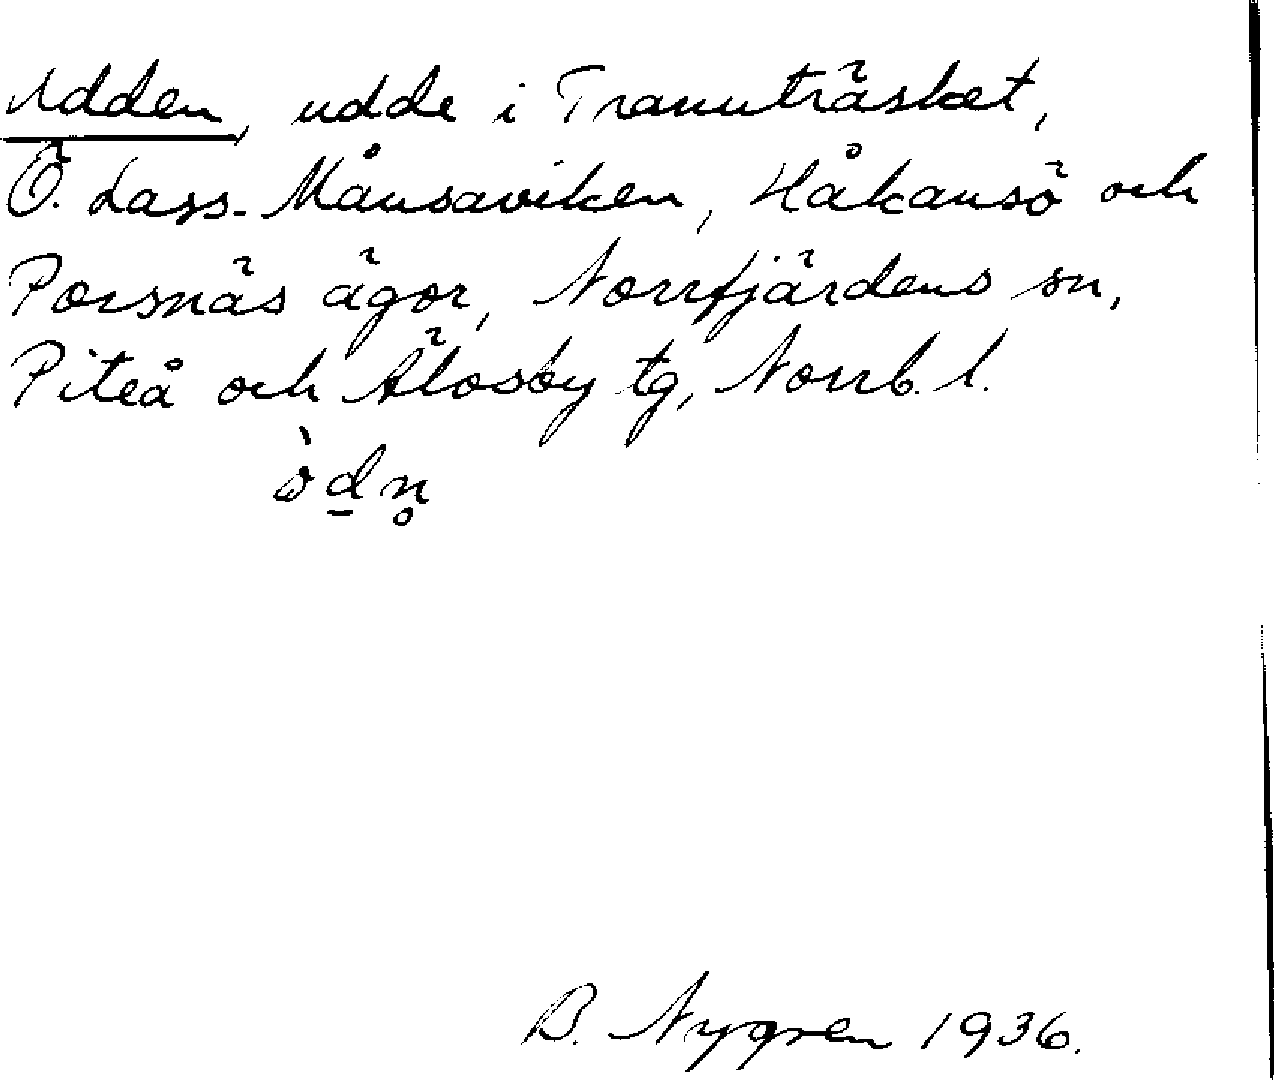 Udden, udde i Tranuträsket,
Ö. Lass-Månsaviken, Håkansö och
Porsnäs ägor, Norrfjärdens sn,
Piteå och Älvsby tg, Norrb. l.
B. Nygren 1936.